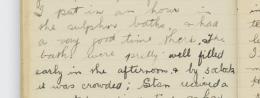 I put in an hour in
the sulphur baths & had
a very good time there. The
baths were pretty well filled
early in the afternoon & by
it was crowded; Stan received a